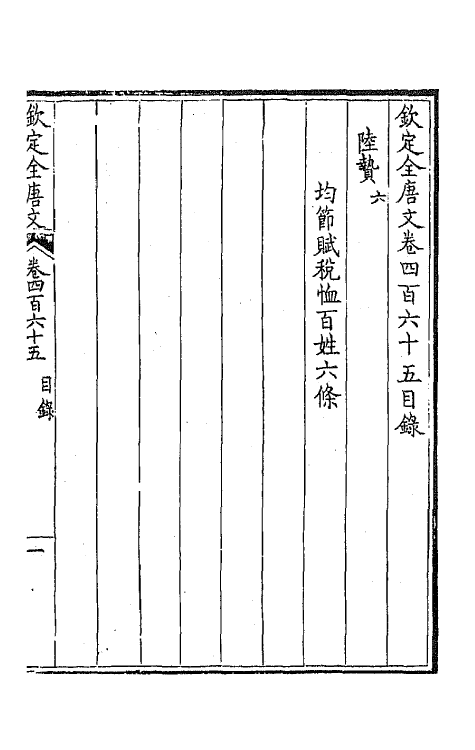 欽定全唐文卷四百六十五目錄
陸贄六
均節賦稅恤百姓六條
欽定全唐文
卷四百六十五
目錄
一